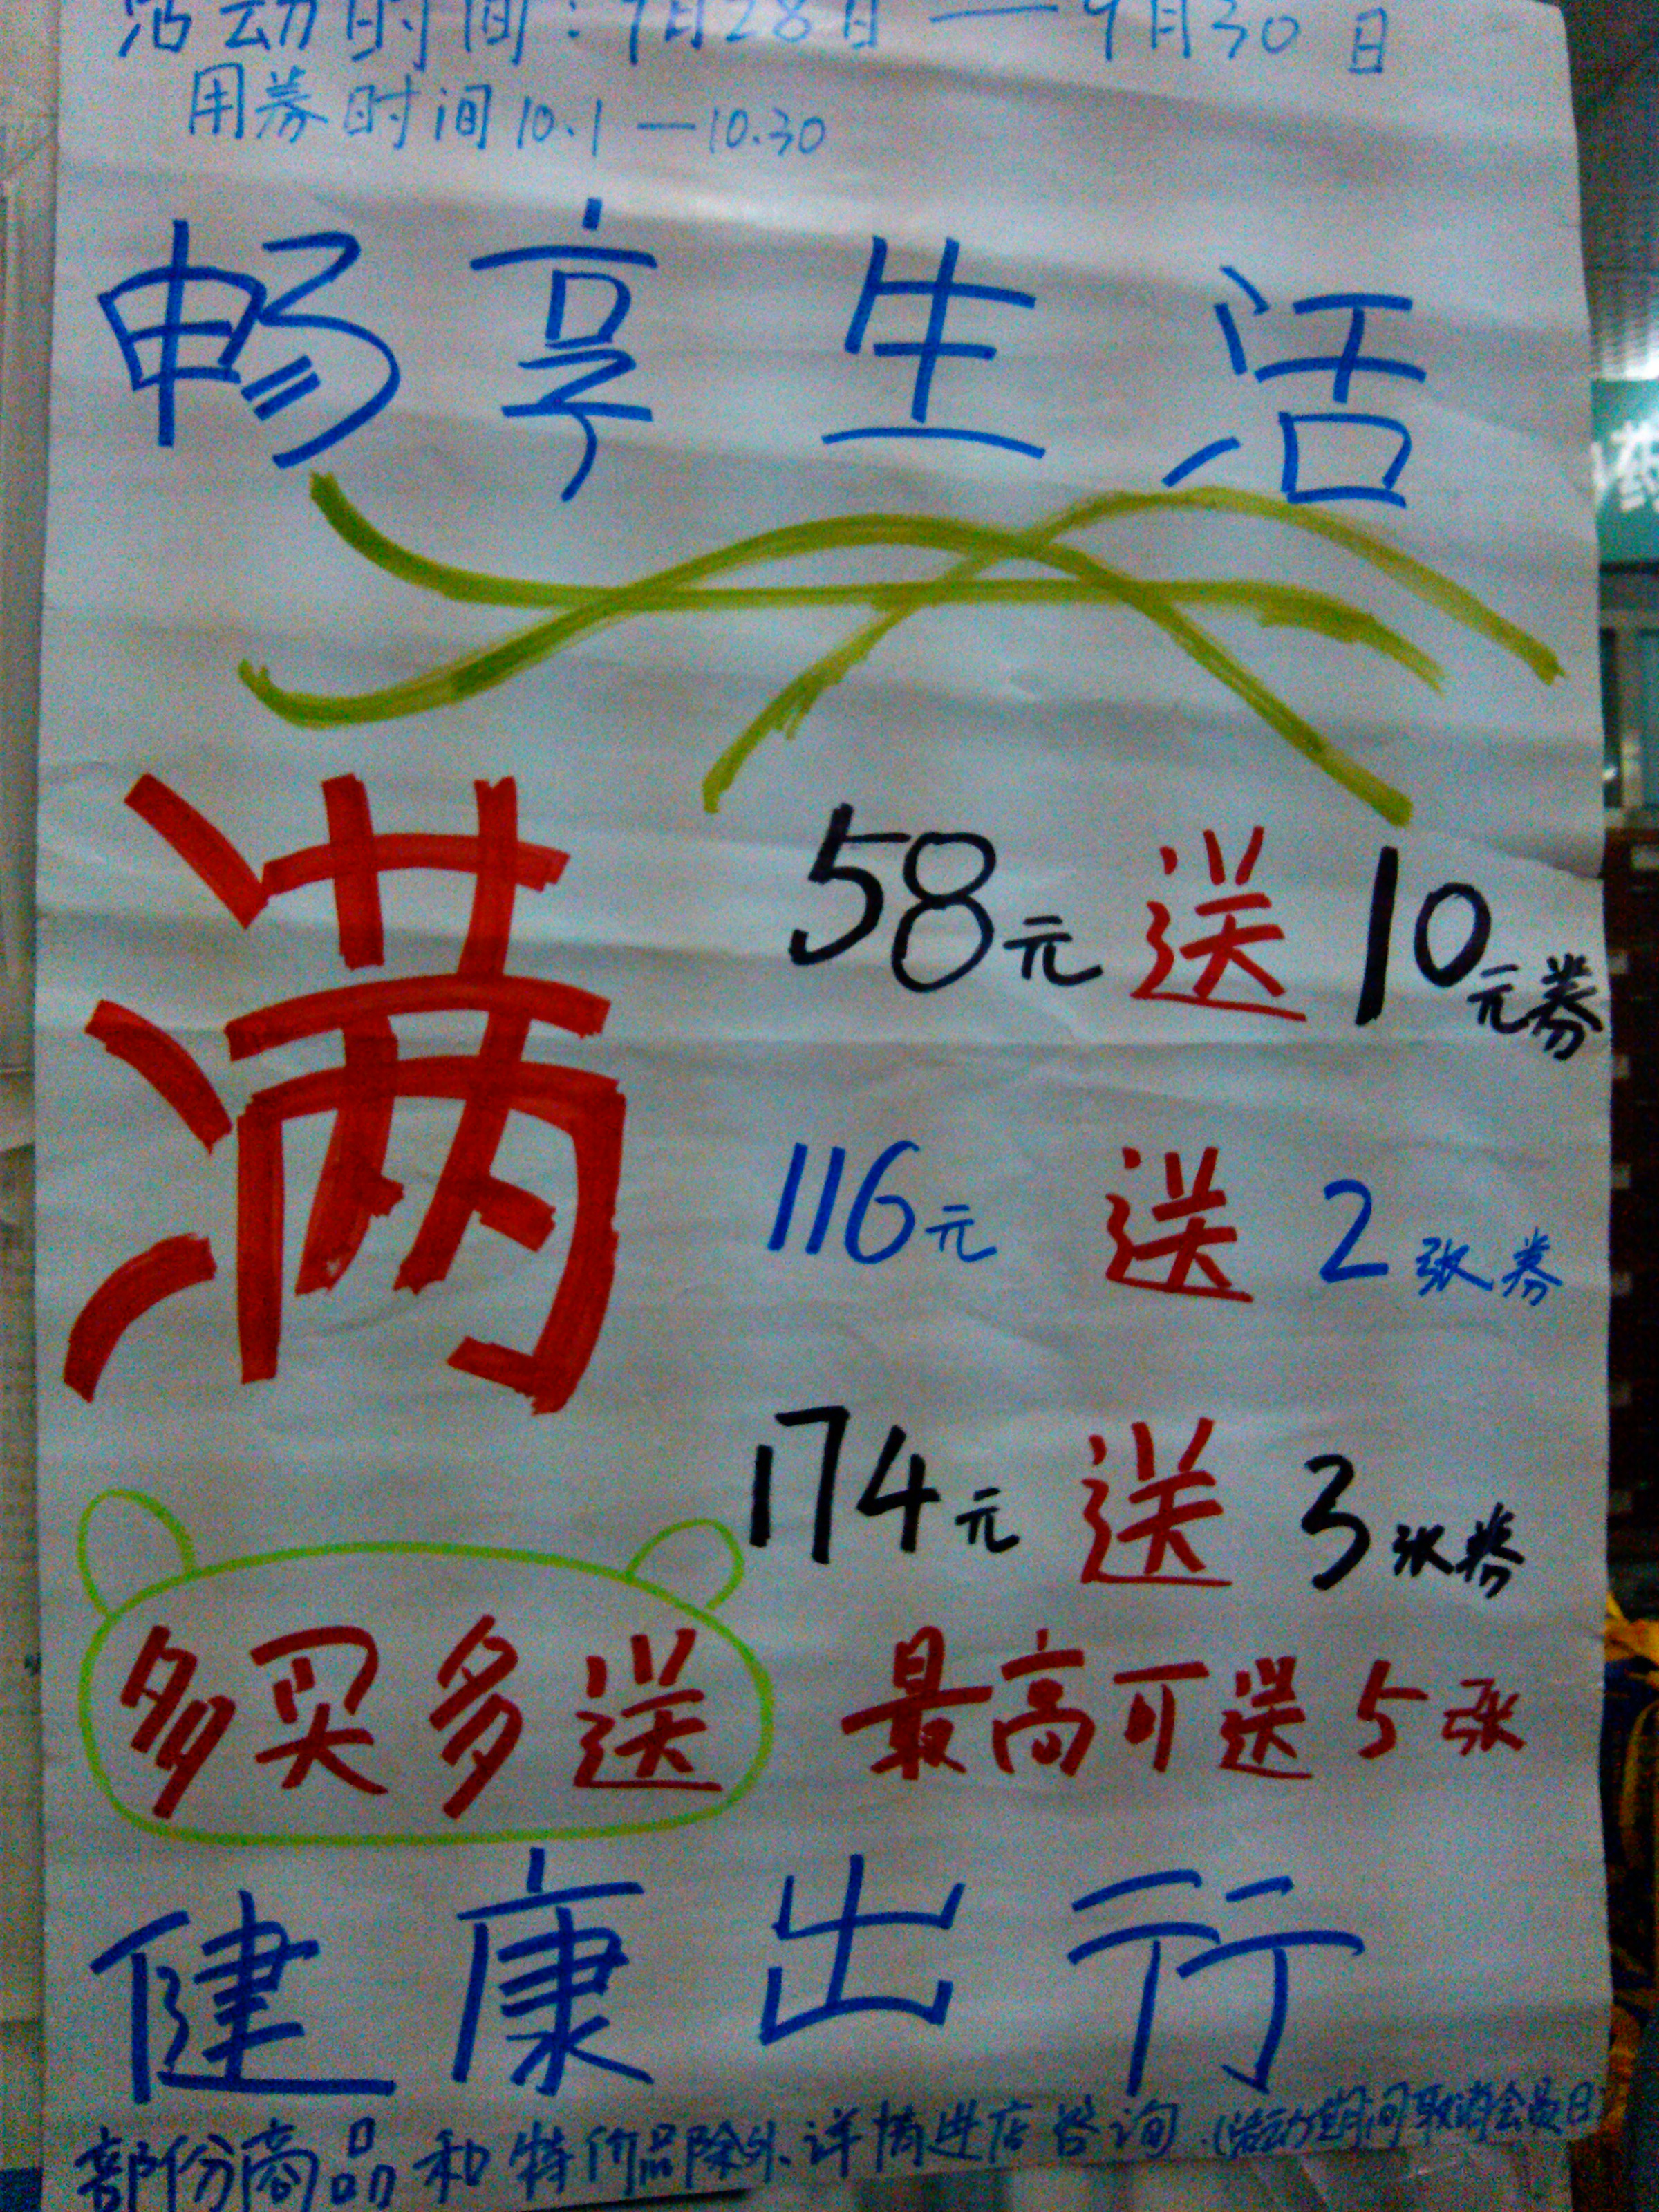 活动时间:9月28日—9月30日
用券时间10.1—10.30
畅享生活
满
58元送10元券
116元送2张券
174元送3张券
多买多送 最高可送5张
健康出行
部份商品和特价品除外、详情进店咨询.(活动期间取消会员日)
药